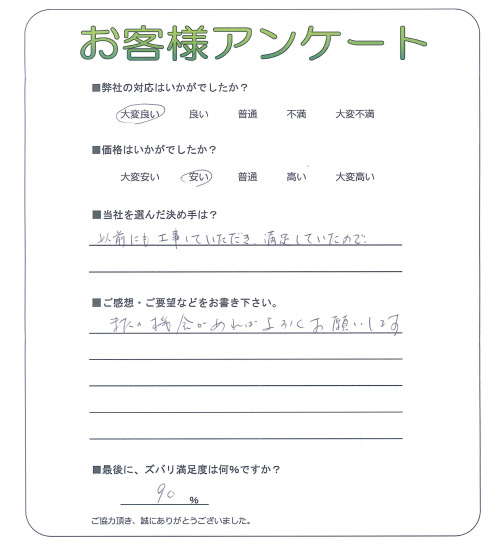 お客様アンケート
■弊社の対応はいかがでしたか？
大変良い 良い 普通 不満 大変不満
■価格はいかがでしたか？
大変安い 安い 普通 高い 大変高い
■当社を選んだ決め手は？
以前にも工事していただき、満足していたので。
■ご感想・ご要望などをお書き下さい。
またの機会があればよろしくお願いします
■最後に、ズバリ満足度は何%ですか？
90 %
ご協力頂き、誠にありがとうございました。